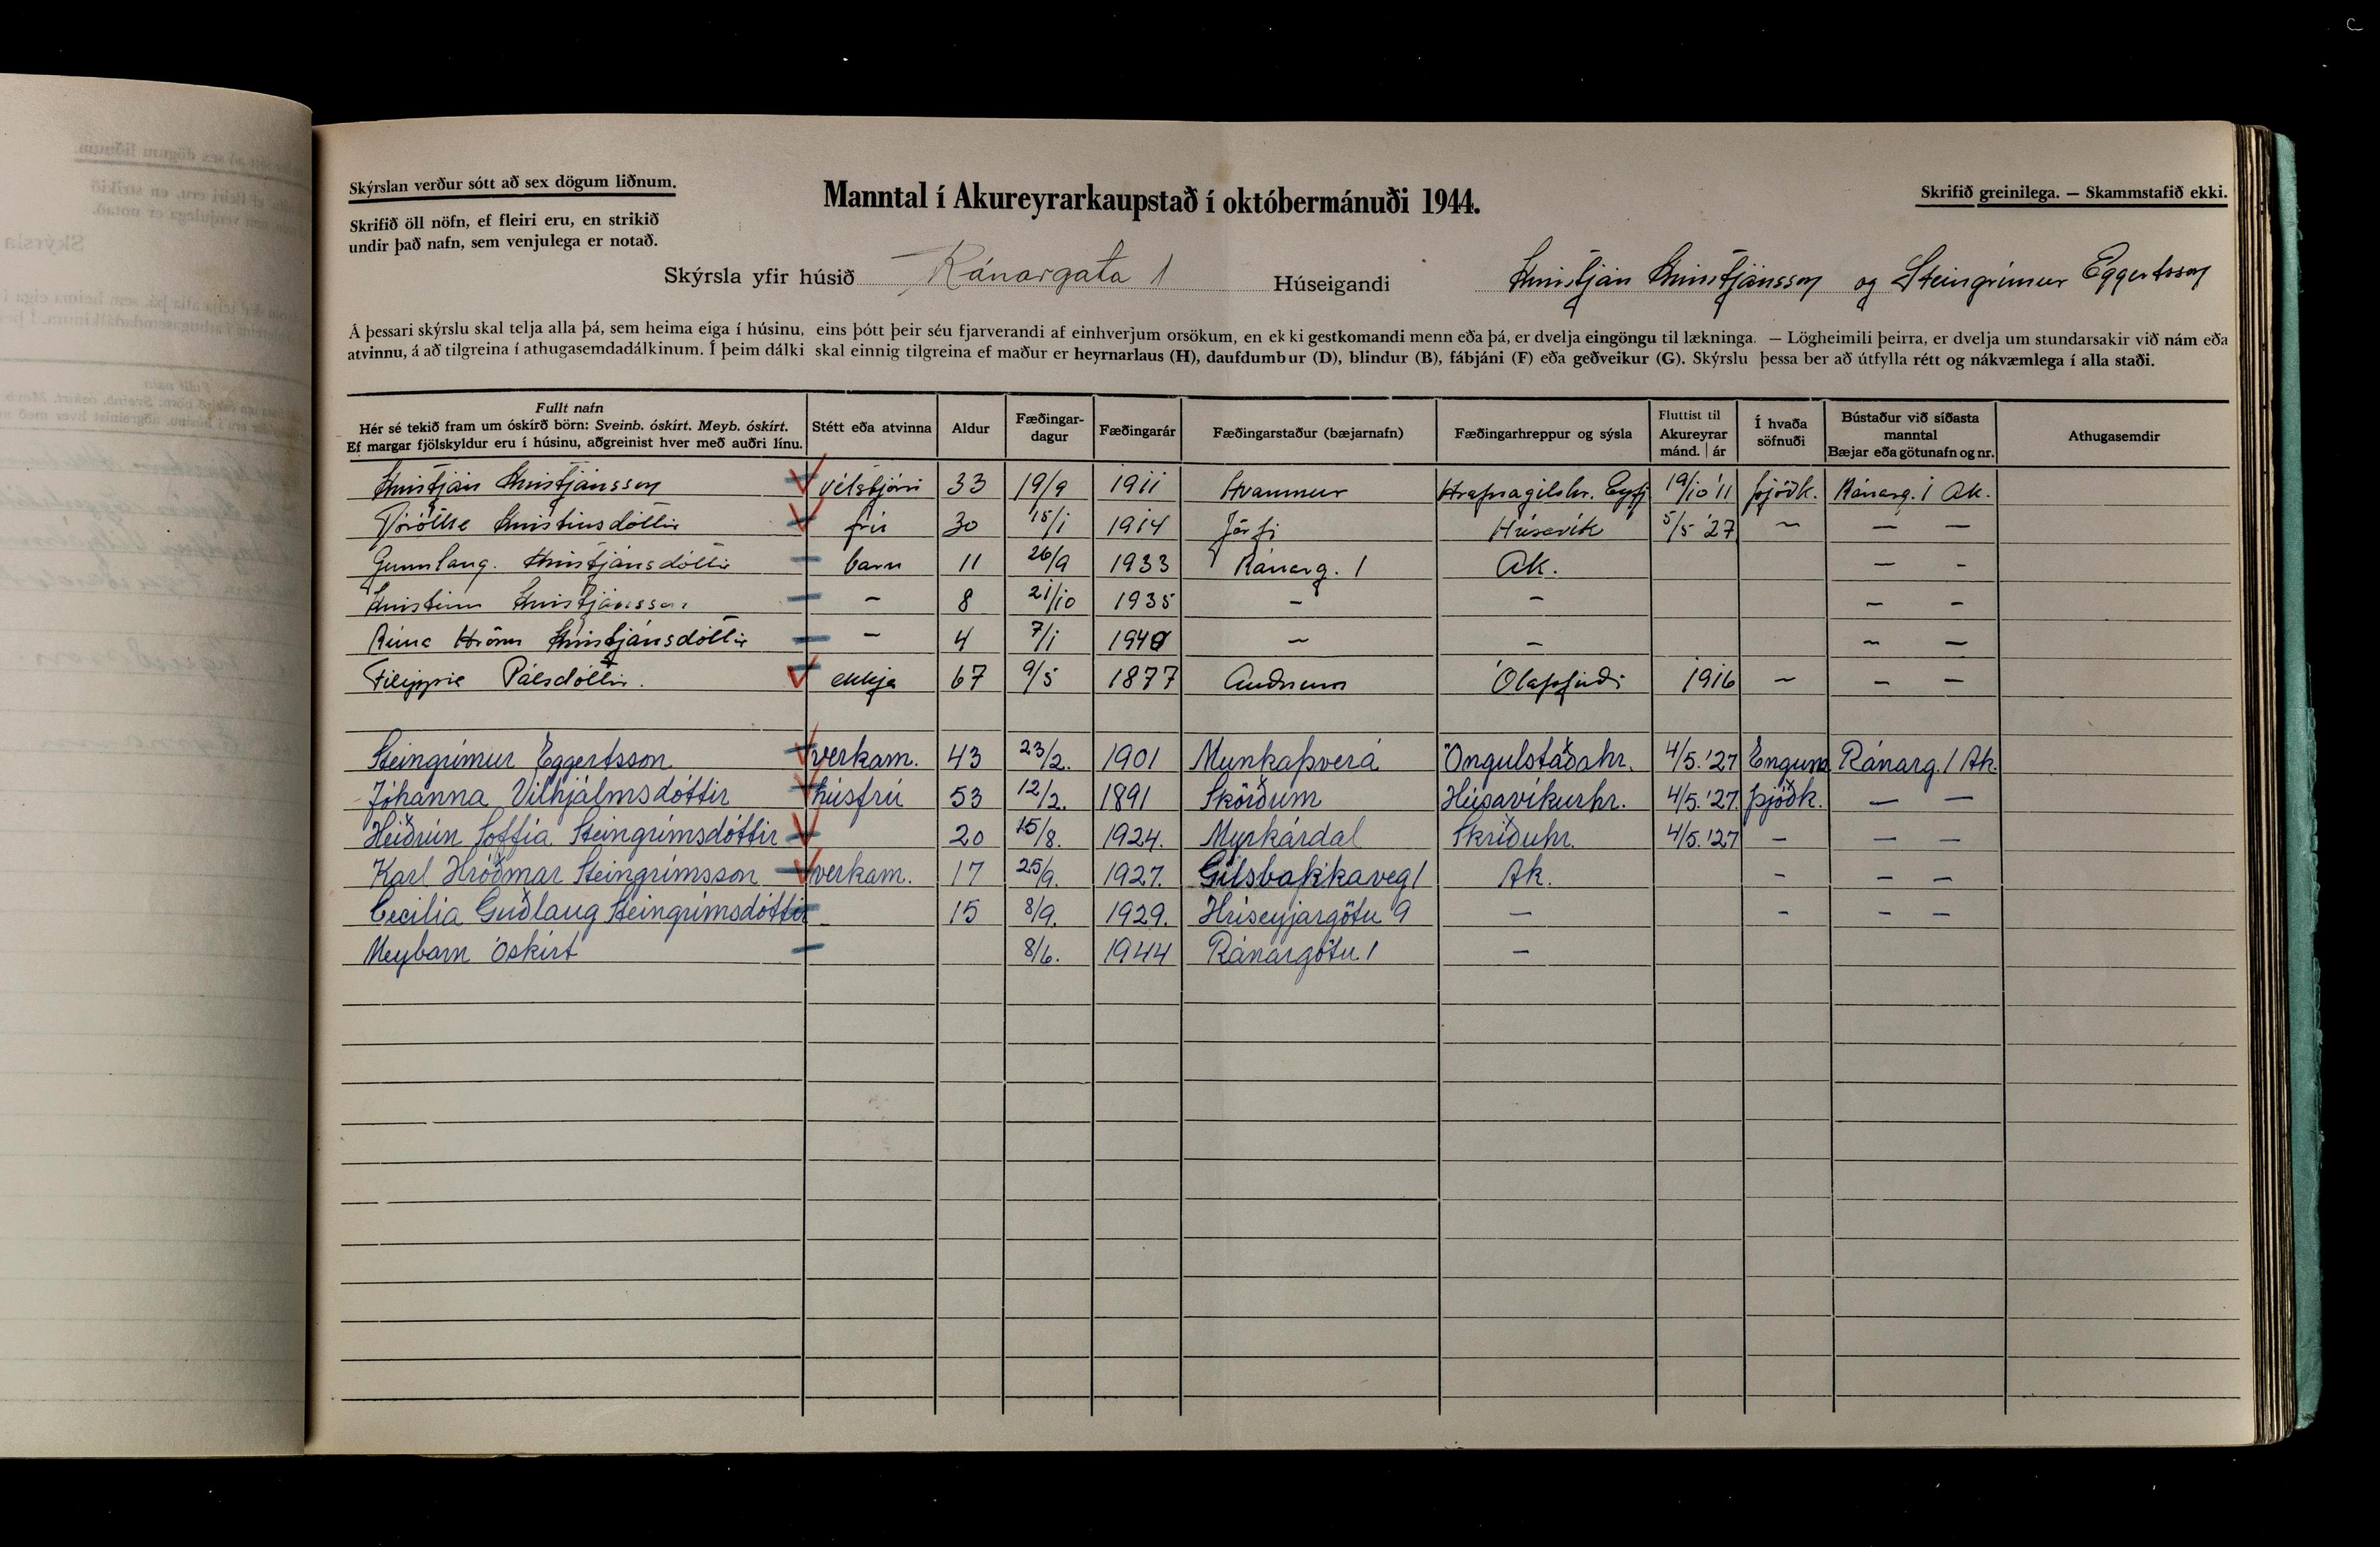 Skýrslan verður sótt að sex dögum liðnum.
Manntal í Akureyrarkaupstað í októbermánuði 1944.
Skrifið greinilega. — Skammstafið ekki.
Skrifið öll nöfn, ef fleiri eru, en strikið
undir það nafn, sem venjulega er notað.
Skýrsla yfir húsið Ránargata 1 Húseigandi Kristján Kristjánsson og Steingrímur Eggertsson
Á þessari skýrslu skal telja alla þá, sem heima eiga í húsinu, eins þótt þeir séu fjarverandi af einhverjum orsökum, en ekki gestkomandi menn eða þá, er dvelja eingöngu til lækninga. — Lögheimili þeirra, er dvelja um stundarsakir við nám eða
atvinnu, á að tilgreina í athugasemdadálkinum. Í þeim dálki skal einnig tilgreina ef maður er heyrnarlaus (H), daufdumbur (D), blindur (B), fábjáni (F) eða geðveikur (G). Skýrslu þessa ber að útfylla rétt og nákvæmlega í alla staði.
Fullt nafn
Hér sé tekið fram um óskírð börn: Sveinb. óskírt. Meyb. óskírt.
Ef margar fjölskyldur eru í húsinu, aðgreinist hver með auðri línu.
Stétt eða atvinna
Aldur
Fæðingar-
dagur
Fæðingarár
Fæðingarstaður (bæjarnafn)
Fæðingarhreppur og sýsla
Fluttist til
Akureyrar
mánd. | ár
Í hvaða
söfnuði
Bústaður við síðasta
manntal
Bæjar eða götunafn og nr.
Athugasemdir
Kristján Kristjánsson vélstjóri 33 19/9 1911 Hvammur Hrafnagilshr. Eyfj 19/10 '11 þjóðk. Ránarg. 1 Ak.
Kristinsdóttir frú 30 15/1 1914 Járfi Húsavík 5/5 '27 ~ — —
Gunnlaug. Kristjánsdóttir barn 11 26/9 1933 Ránarg. 1 Ak. — -
Kristinn Kristjánsson - 8 21/10 1935 - - - -
Hrönn Kristjánsdóttir - 4 7/1 1940 - - - -
Filippía Pálsdóttir. ekkja 67 9/5 1877 Ólafsfirði 1916 ~ - -
Steingrímur Eggertsson verkam. 43 23/2. 1901 Munkaþverá Öngulstaðahr. 4/5. '27 Engum Ránarg. 1 Ak.
Jóhanna Vilhjálmsdóttir húsfrú 53 12/2. 1891 Skörðum Húsavíkurhr. 4/5. '27. þjóðk. — —
Heiðrún Soffía Steingrímsdóttir 20 15/8. 1924. Myrkárdal Skriðuhr. 4/5. '27 - — —
Karl Hróðmar Steingrímsson verkam. 17 25/9. 1927. Gilsbakkaveg 1 Ak. - - -
Cecilia Guðlaug Steingrímsdóttir - 15 8/9. 1929. Hríseyjargötu 9 — - - -
Meybarn óskírt 8/6. 1944 Ránargötu 1 —